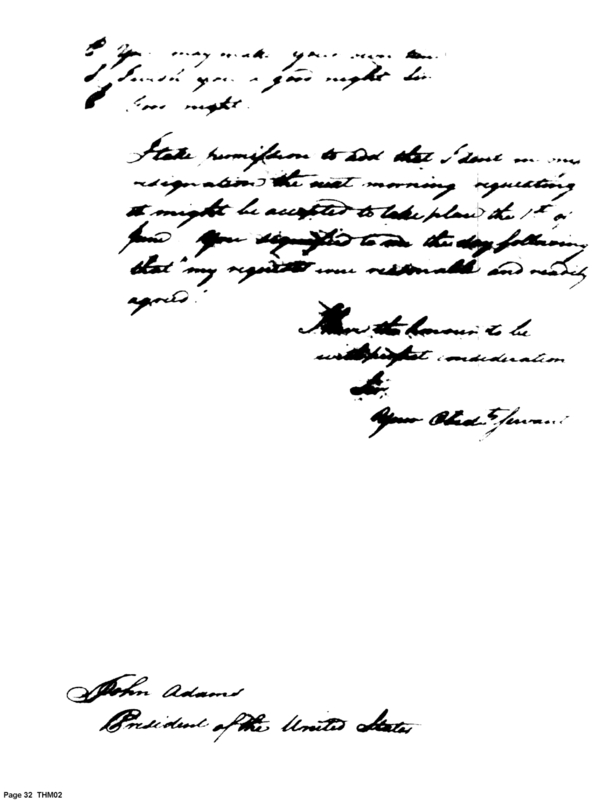 P You may make your own time
S I wish you a good night Sir
P Good night.
I take permission to add that I sent in my
resignation the next morning requesting
it might be accepted to take place the 1st of
June You signified to me the day following
that "my requests were reasonable and readily
agreed"
I have the honour to be
with perfect consideration
Sir,
Your Obedt servant
John Adams
President of the United States
Page 32 THM02